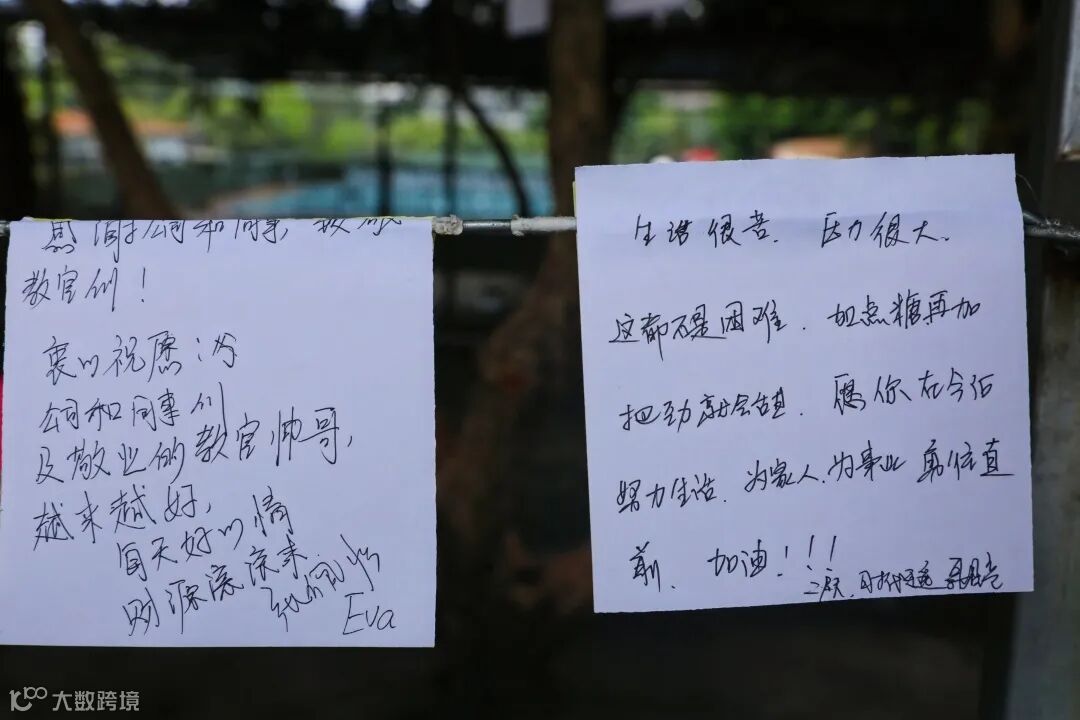 感谢公司和同事,
教官们!
衷心祝愿:
公司和同事们
及敬业的教官帅哥,
越来越好,
每天好心情
财源滚滚来
Eva
生活很苦、压力很大、
这都不是困难、加点糖再加
把劲 愿你在今后
努力生活、为家人、为事业 勇往直
前、加油!!!
大数跨境